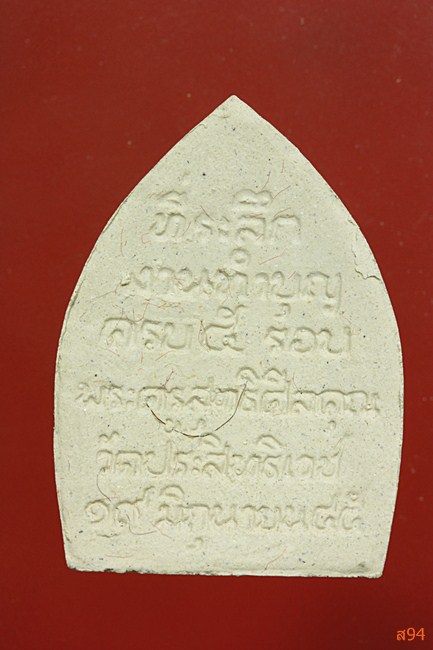 ที่ระลึก
งานทำบุญ
ครบ ๕ รอบ
พระครูสุทธิศีลคุณ
วัดประสิทธิเวช
๑๙ มิถุนายน ๔๕
ส94